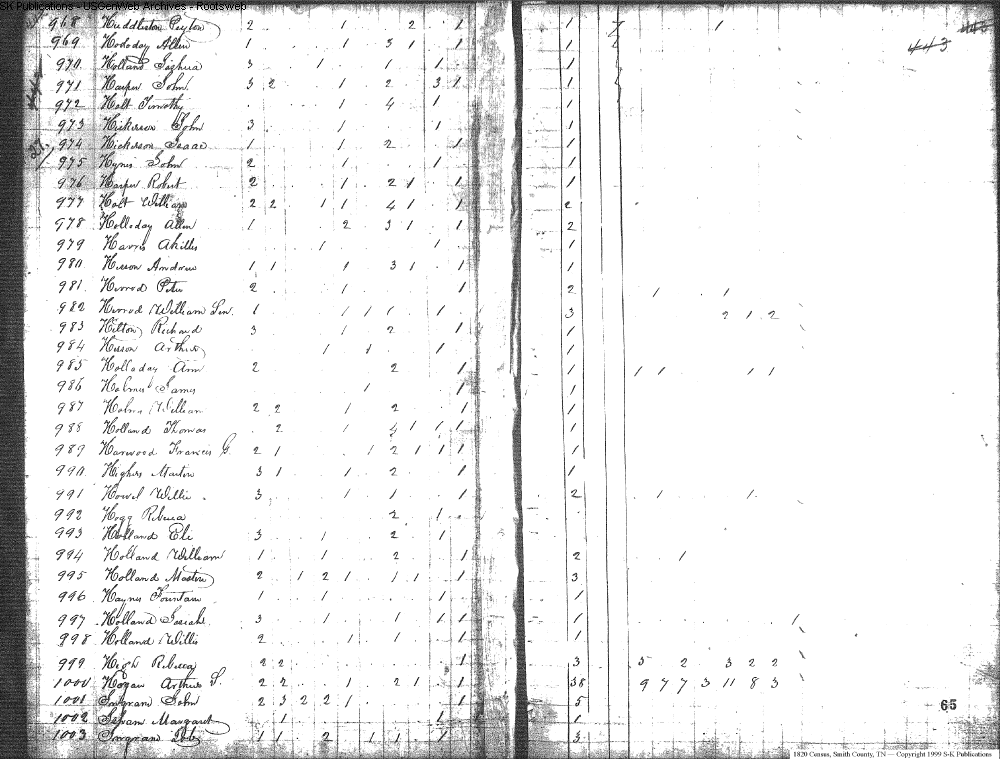 S-K Publications - USGenWeb Archives - Rootsweb
968 Huddleston Peyton 2 1 2 1 1 1
969 Hododay Allen 1 1 3 1 1 1
443
970 Holland Joshua 3 1 1 1 1
971 Harper John 3 2 1 2 3 1 1
972 Holt Timothy 1 4 1 1
973 Hickerson John 3 1 1 1
974 Hickerson Isaac 1 1 2 1 1
975 Hynes John 2 1 1 1
976 Harper Robert 2 1 2 1 1 1
977 Holt William 2 2 1 1 4 1 1 2
978 Holloday Allen 1 2 3 1 1 2
979 Harris Akilles 1 1 1
980 Hesson Andrew 1 1 1 3 1 1 1
981 Herrod Peter 2 1 1 2 1 1
982 Herrod William Sen. 1 1 1 1 1 3 2 1 2
983 Hilton Richard 3 1 2 1 1
984 Hesson Arthur 1 1 1 1
985 Holloday Ann 2 2 1 1 1 1 1 1
986 Holmes James 1 1
987 Holms William 2 2 1 2 1 1
988 Holland Thomas 2 1 4 1 1 1 1
989 Harwood Francis G. 2 1 1 2 1 1 1 1
990 Highers Martin 3 1 1 2 1 1
991 Howel Willie 3 1 1 1 2 1 1
992 Hogg Rebecca 2 1
993 Holland Eli 3 1 2 1 1
994 Holland William 1 1 2 1 2 1
995 Holland Martin 2 1 2 1 1 1 1 3
996 Haynes Fountain 1 1 1 1
997 Holland Josiah 3 1 1 1 1 1 1
998 Holland Willis 2 1 1 1 1
999 High Rebecca 2 2 1 3 5 2 3 2 2
1000 Hogan Arthur S. 2 2 1 2 1 1 38 9 7 7 3 11 8 3
1001 Ingram John 2 3 2 2 1 1 5
65
1002 Margaret 1 1 1
1003 Ingram 1 1 2 1 1 1 3
1820 Census, Smith County, TN — Copyright 1999 S-K Publications